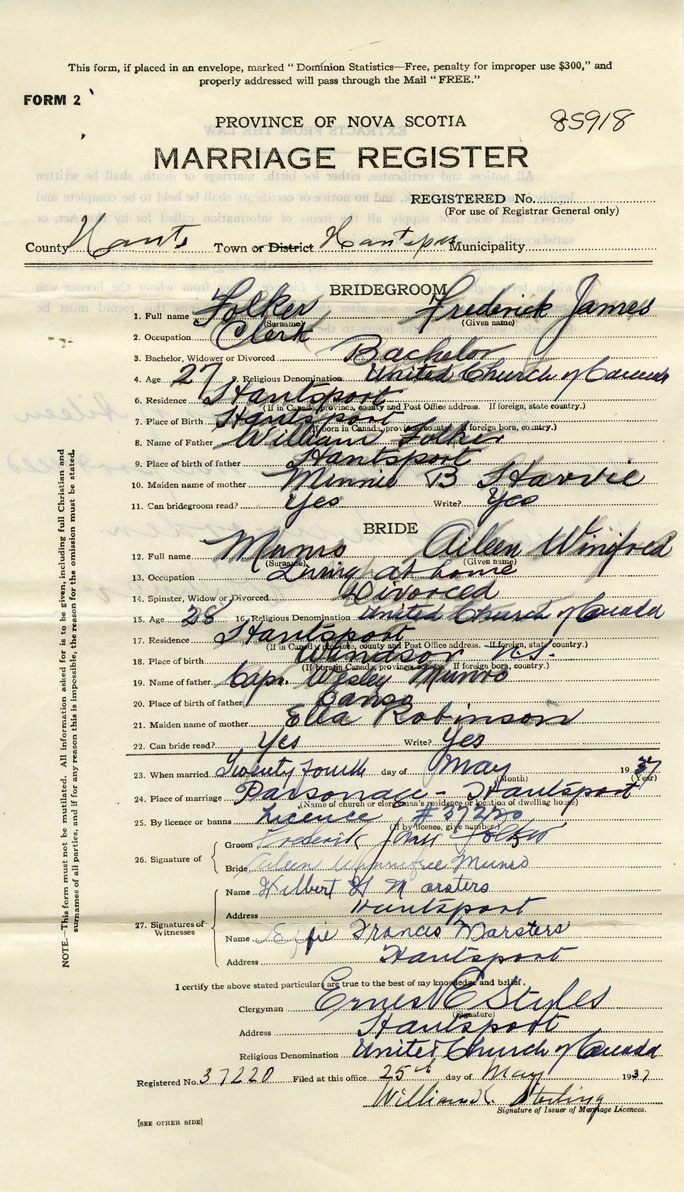 This form, if placed in an envelope, marked " Dominion Statistics—Free, penalty for improper use $300," and
properly addressed will pass through the Mail " FREE."
FORM 2
PROVINCE OF NOVA SCOTIA
85918
MARRIAGE REGISTER
REGISTERED No.
(For use of Registrar General only)
County Hants Town or District Hantsport Municipality
BRIDEGROOM
1. Full name Folker Frederick James
(Surname) (Given name)
2. Occupation Clerk
3. Bachelor, Widower or Divorced Bachelor
4. Age 27 5. Religious Denomination United Church of Canada
6. Residence Hantsport
(If in Canada, province, county and Post Office address. If foreign, state country.)
7. Place of Birth Hantsport
(If born in Canada, province, county. If foreign born, country.)
8. Name of Father William Folker
9. Place of birth of father Hantsport
10. Maiden name of mother Minnie B Harvie
11. Can bridegroom read? Yes Write? Yes
BRIDE
12. Full name Munro Aileen Winifred
(Surname) (Given name)
13. Occupation Living at home
14. Spinster, Widow or Divorced Divorced
15. Age 28 16. Religious Denomination United Church of Canada
17. Residence Hantsport
(If in Canada, province, county and Post Office address. If foreign, state country.)
18. Place of birth Windsor N.S.
(If born in Canada, province, county. If foreign born, country.)
19. Name of father Capt. Wesley Munro
20. Place of birth of father Canso
21. Maiden name of mother Ella Robinson
22. Can bride read? Yes Write? Yes
23. When married Twenty fourth day of May 1937
(Month) (Year)
24. Place of marriage Parsonage - Hantsport
(Name of church or clergyman's residence or location of dwelling house)
25. By licence or banns Licence # 37220
(If by licence, give number)
26. Signature of
Groom Frederick James Folker
Bride Aileen Winnifred Munro
27. Signatures of Witnesses
Name Hilbert H Marsters
Address Hantsport
Name Effie Francis Marsters
Address Hantsport
I certify the above stated particulars are true to the best of my knowledge and belief.
Clergyman Ernest E Styles
(Signature)
Address Hantsport
Religious Denomination United Church of Canada
Registered No. 37220 Filed at this office 25th day of May 1937
William K. Sterling
Signature of Issuer of Marriage Licences.
[SEE OTHER SIDE]
NOTE.—This form must not be mutilated. All information asked for is to be given, including full Christian and
surnames of all parties, and if for any reason this is impossible, the reason for the omission must be stated.